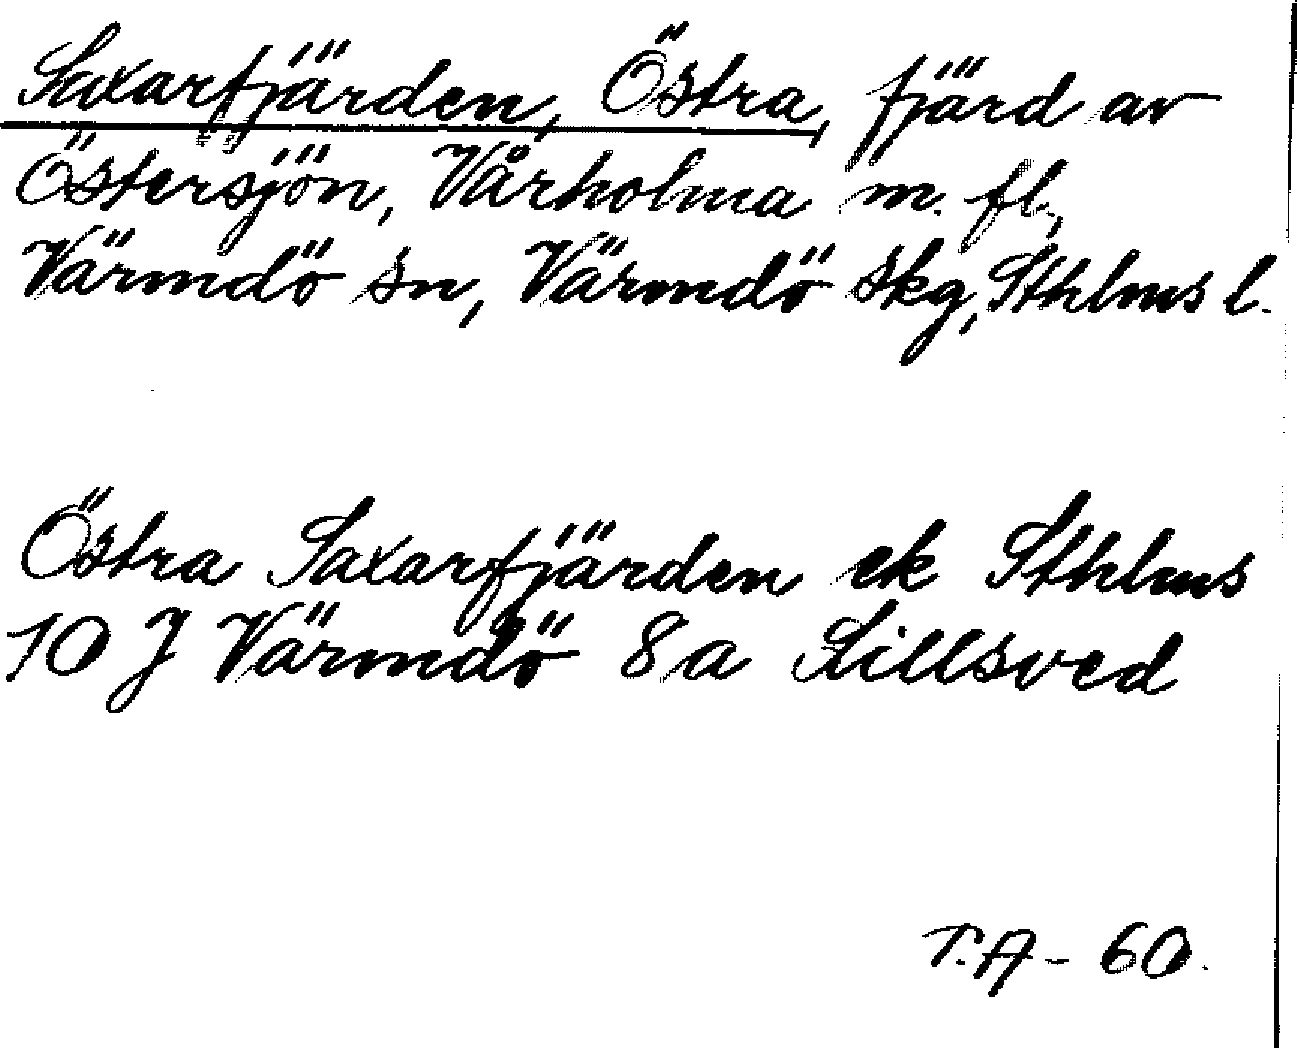 Saxarfjärden, Östra, fjärd av
Östersjön, Vårholma m. fl.,
Värmdö sn, Värmdö skg, Sthlms l.
Östra Saxarfjärden ek Sthlms
10 J Värmdö 8a Sillsved
T.A - 60.